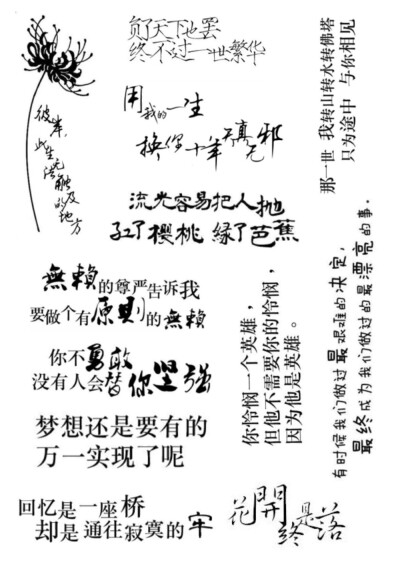 负了天下也罢
终不过一世繁华
用我的一生
换你十年天真无邪
那一世 我转山转水转佛塔
只为途中 与你相见
彼岸，
此生无法触及的地方
流光容易把人抛
红了樱桃 绿了芭蕉
無賴的尊严告诉我
要做个有原则的無賴
你不勇敢
没有人会替你坚强
梦想还是要有的
万一实现了呢
你怜悯一个英雄，
但他不需要你的怜悯，
因为他是英雄。
有时候我们做过最艰难的决定，
最终成为我们做过的最漂亮的事。
回忆是一座桥
却是通往寂寞的牢
花開終是落